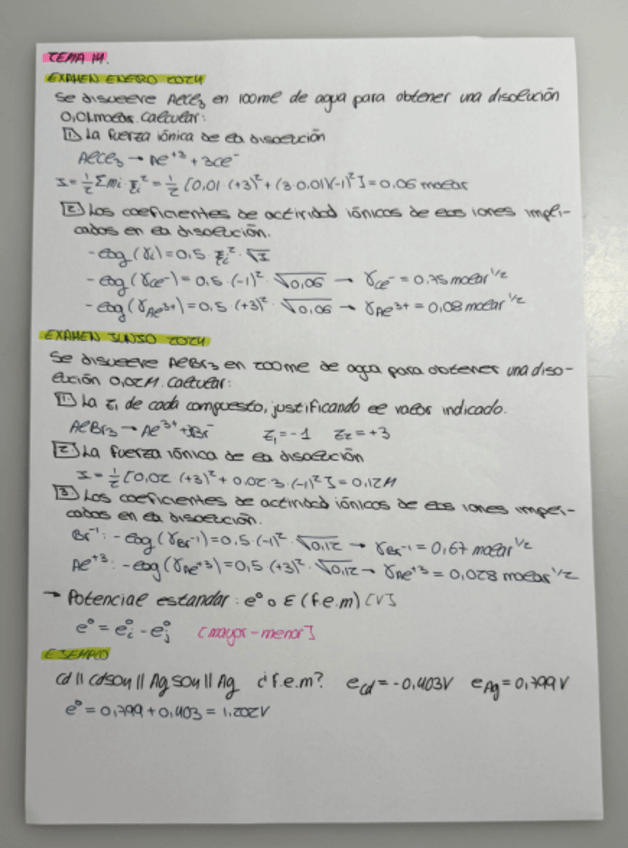 TEMA 14.
EXAMEN ENERO 2024
Se disuelve AlCl₃ en 100ml de agua para obtener una disolución
0,01molar. Calcular:
1 La fuerza iónica de la disolución
AlCl₃ → Al⁺³ + 3Cl⁻
I = 1/2 Σmi Zi² = 1/2 [0,01·(+3)² + (3·0,01)(-1)²] = 0,06 molar
2 Los coeficientes de actividad iónicos de los iones impli-
cados en la disolución.
- log(γi) = 0,5·Zi²·√I
- log(γCl⁻) = 0,5·(-1)²·√0,06 → γCl⁻ = 0,75 molar^1/2
- log(γAl³⁺) = 0,5·(+3)²·√0,06 → γAl³⁺ = 0,08 molar^1/2
EXAMEN JUNIO 2024
Se disuelve AlBr₃ en 200ml de agua para obtener una diso-
lución 0,02M. Calcular:
1 La Zi de cada compuesto, justificando el valor indicado.
AlBr₃ → Al³⁺ + 3Br⁻ Z₁ = -1 Z₂ = +3
2 La fuerza iónica de la disolución
I = 1/2 [0,02·(+3)² + 0,02·3·(-1)²] = 0,12M
3 Los coeficientes de actividad iónicos de los iones impli-
cados en la disolución.
Br⁻¹: -log(γBr⁻¹) = 0,5·(-1)²·√0,12 → γBr⁻¹ = 0,67 molar^1/2
Al⁺³: -log(γAl⁺³) = 0,5·(+3)²·√0,12 → γAl⁺³ = 0,028 molar^1/2
→ Potencial estandar: e° o E (f.e.m) [V]
e° = e°i - e°j [mayor-menor]
EJEMPLO
Cd || CdSO4 || AgSO4 || Ag ¿f.e.m? eCd = -0,403V eAg = 0,799V
e° = 0,799 + 0,403 = 1.202V